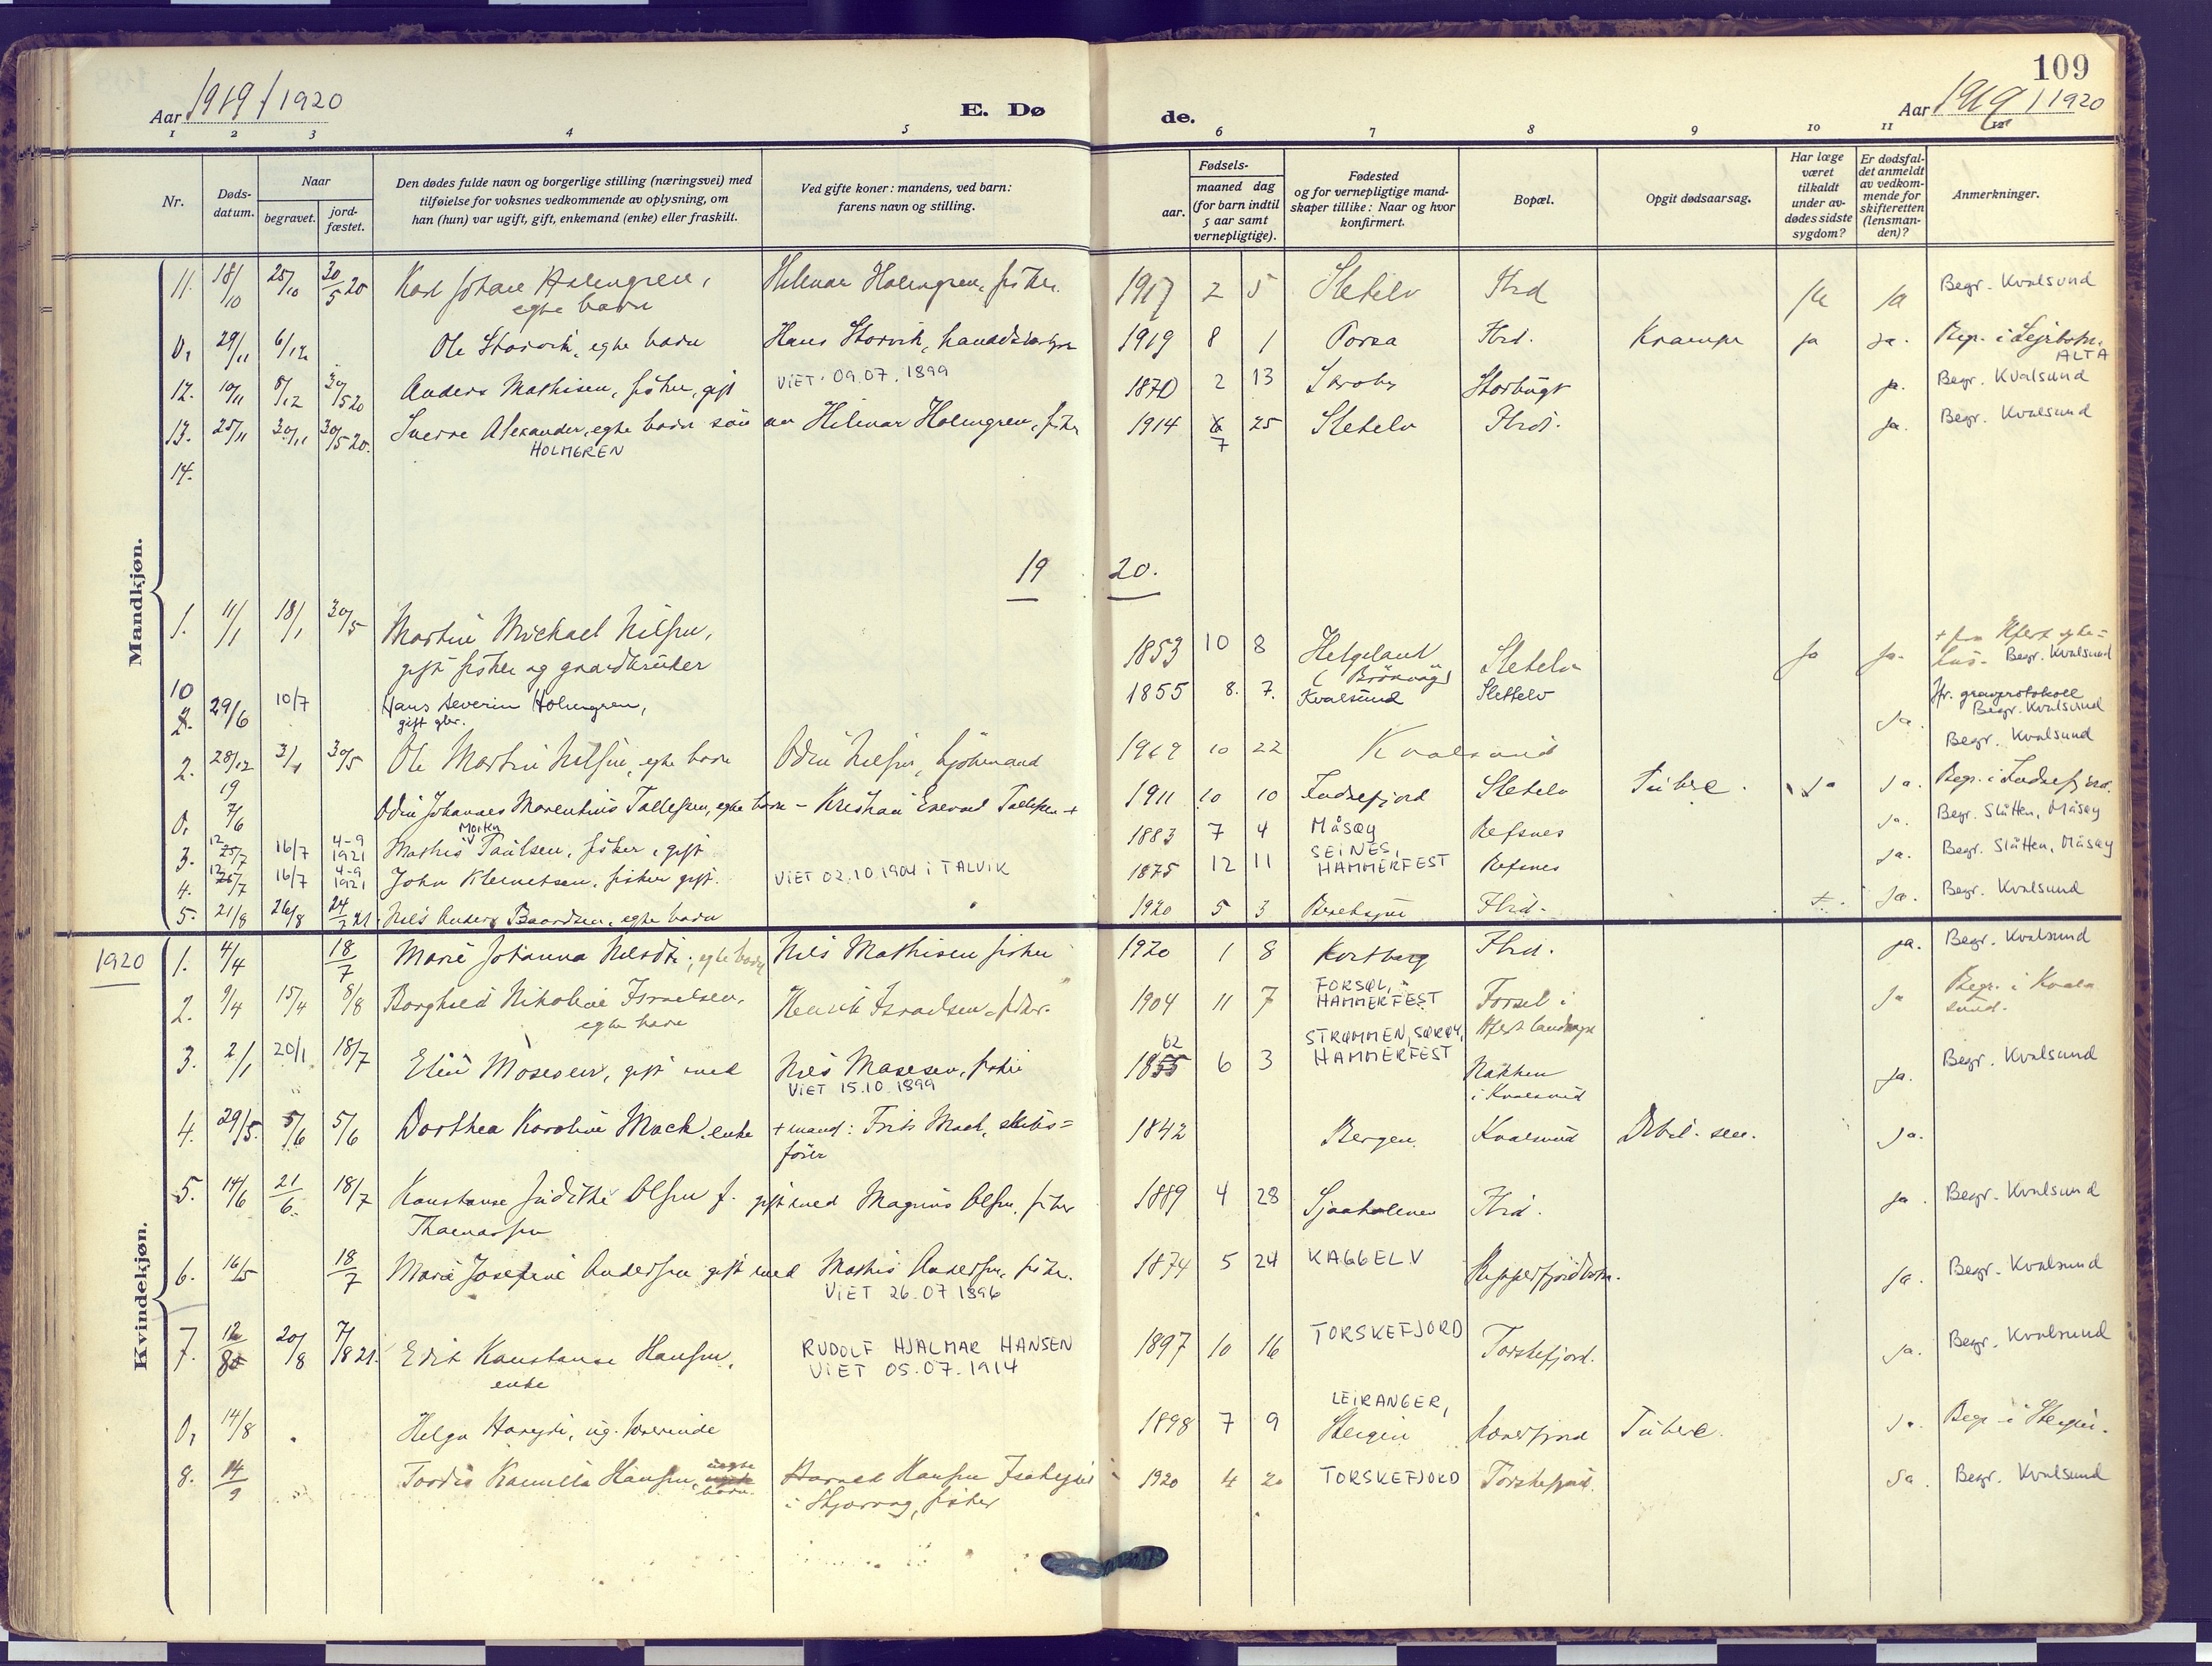 109
Aar 1919 / 1920
E. Dø
de.
Aar 1919 / 1920
1 2 3 4 5 6 7 8 9 10 11 12
Nr.
Døds-
datum.
Naar
begravet.
jord-
fæstet.
Den dødes fulde navn og borgerlige stilling (næringsvei) med
tilføielse for voksnes vedkommende av oplysning, om
han (hun) var ugift, gift, enkemand (enke) eller fraskilt.
Ved gifte koner: mandens, ved barn:
farens navn og stilling.
Fødsels-
aar.
maaned dag
(for barn indtil
5 aar samt
vernepligtige).
Fødested
og for vernepligtige mand-
skaper tillike: Naar og hvor
konfirmert.
Bopæl.
Opgit dødsaarsag.
Har læge
været
tilkaldt
under av-
dødes sidste
sygdom?
Er dødsfal-
det anmeldt
av vedkom-
mende for
skifteretten
(lensman-
den)?
Anmerkninger.
Mandkjøn.
11. 18/10 25/10 30/5 20 Karl Johan Holmgren, Hilmar Holmgren, fisker. 1917 2 5 Sletelv Ibid ja Begr. Kvalsund
egte barn
0, 29/11 6/12 Ole Storvik, egte barn Hans Storvik, 1919 8 1 Porsa Ibid. Krampe ja ja.
ALTA
12. 10/11 8/12 30/5 20 Anders Mathisen, fisker, gift VIET 09.07.1899 1870 2 13 Sørøby Storbugt ja. Begr. Kvalsund
13. 25/11 30/11 30/5 20. Sverre Alexander, egte barn søn av Hilmar Holmgren, fisker 1914 7 25 Sletelv Ibid. ja. Begr. Kvalsund
HOLMGREN
14.
19 20.
1. 11/1 18/1 30/5 Martin Mickael Nilsen, 1853 10 8 Helgeland Sletelv ja ja. Begr. Kvalsund
gift fisker og gaardbruker
10 2. 29/6 10/7 Hans Severin Holmgren, 1855 8. 7. Kvalsund Slettelv Ja. Jfr. gravprotokoll
gift gbr. Begr. Kvalsund
2. 28/12 19 3/1 30/5 Ole Martin Nilsen, egte barn Odin Nilsen, 1919 10 22 Kvalsund Begr. Kvalsund
0, 7/6 Odin Johannes Marentius Tollefsen, egte barn - Kristian Tollefsen + 1911 10 10 Indrefjord Sletelv Tuberc. Ja Ja. Begr. i Indrefjord.
3. 12/7 16/7 4-9 1921 Mathis Morten Paulsen, fisker, gift 1883 7 4 Måsøy Refsnes Ja. Begr. Slåtten, Måsøy
4. 12/7 16/7 4-9 1921 John Klemetsen, fisker gift. VIET 02.10.1904 i TALVIK 1875 12 11 SEINES, HAMMERFEST Refsnes Ja. Begr. Slåtten, Måsøy
5. 21/8 26/8 24/ 21. Nils Anders Baardsen, egte barn 1920 5 3 Ibid. Ja. Begr. Kvalsund
Kvindekjøn.
1920
1. 4/4 18/7 Marie Johanna, egte barn Nils Mathisen fisker 1920 1 8 Ibid. ja. Begr. Kvalsund
2. 9/4 15/4 8/8 Borghild Nikoline Israelsen, Henrik Israelsen, fisker. 1904 11 7 FORSØL, HAMMERFEST Forsøl i Ja Begr. i Kval
egte barn Hfest landsogn sund.
3. 2/1 20/1 18/7 Elen Mosesen, gift med Nils Mosesen, fisker 1855 62 6 3 STRØMMEN, SØRØY, HAMMERFEST Nakken ja. Begr. Kvalsund
VIET 15.10.1899 i Kvalsund
4. 29/5. 5/6 5/6 Dorthea Karoline Mack. enke + mand: Frits Mack, skibs= 1842 Bergen Kvalsund Debil. sen. Ja.
fører
5. 14/6 21/6. 18/7 Konstanse Judithe Olsen f. gift med Magnus Olsen, fisker 1889 4 28 Sjaaholmen Ibid. ja. Begr. Kvalsund
Thomassen
6. 16/5 18/7 Marie Josefine Andersen gift med Mathis Andersen, fisker. 1874 5 24 KAGGELV Repparfjordbotn. Ja. Begr. Kvalsund
VIET 26.07.1896
7. 12/8 20/8 7/8 21. Edit Konstanse Hansen, RUDOLF HJALMAR HANSEN 1897 10 16 TORSKEFJORD Torskefjord. Ja. Begr. Kvalsund
enke VIET 05.07.1914
0, 14/8 Helga Harejdi, ug. lærerinde 1898 7 9 LEIRANGER, Steigen Tuberc. Ja. Begr. i Steigen.
8. 14/9 Tordis Kamilla Hansen, uegte barn Harald Hansen 1920 4 20 TORSKEFJORD Torskefjord. Ja. Begr. Kvalsund
i Skjervøy, fisker